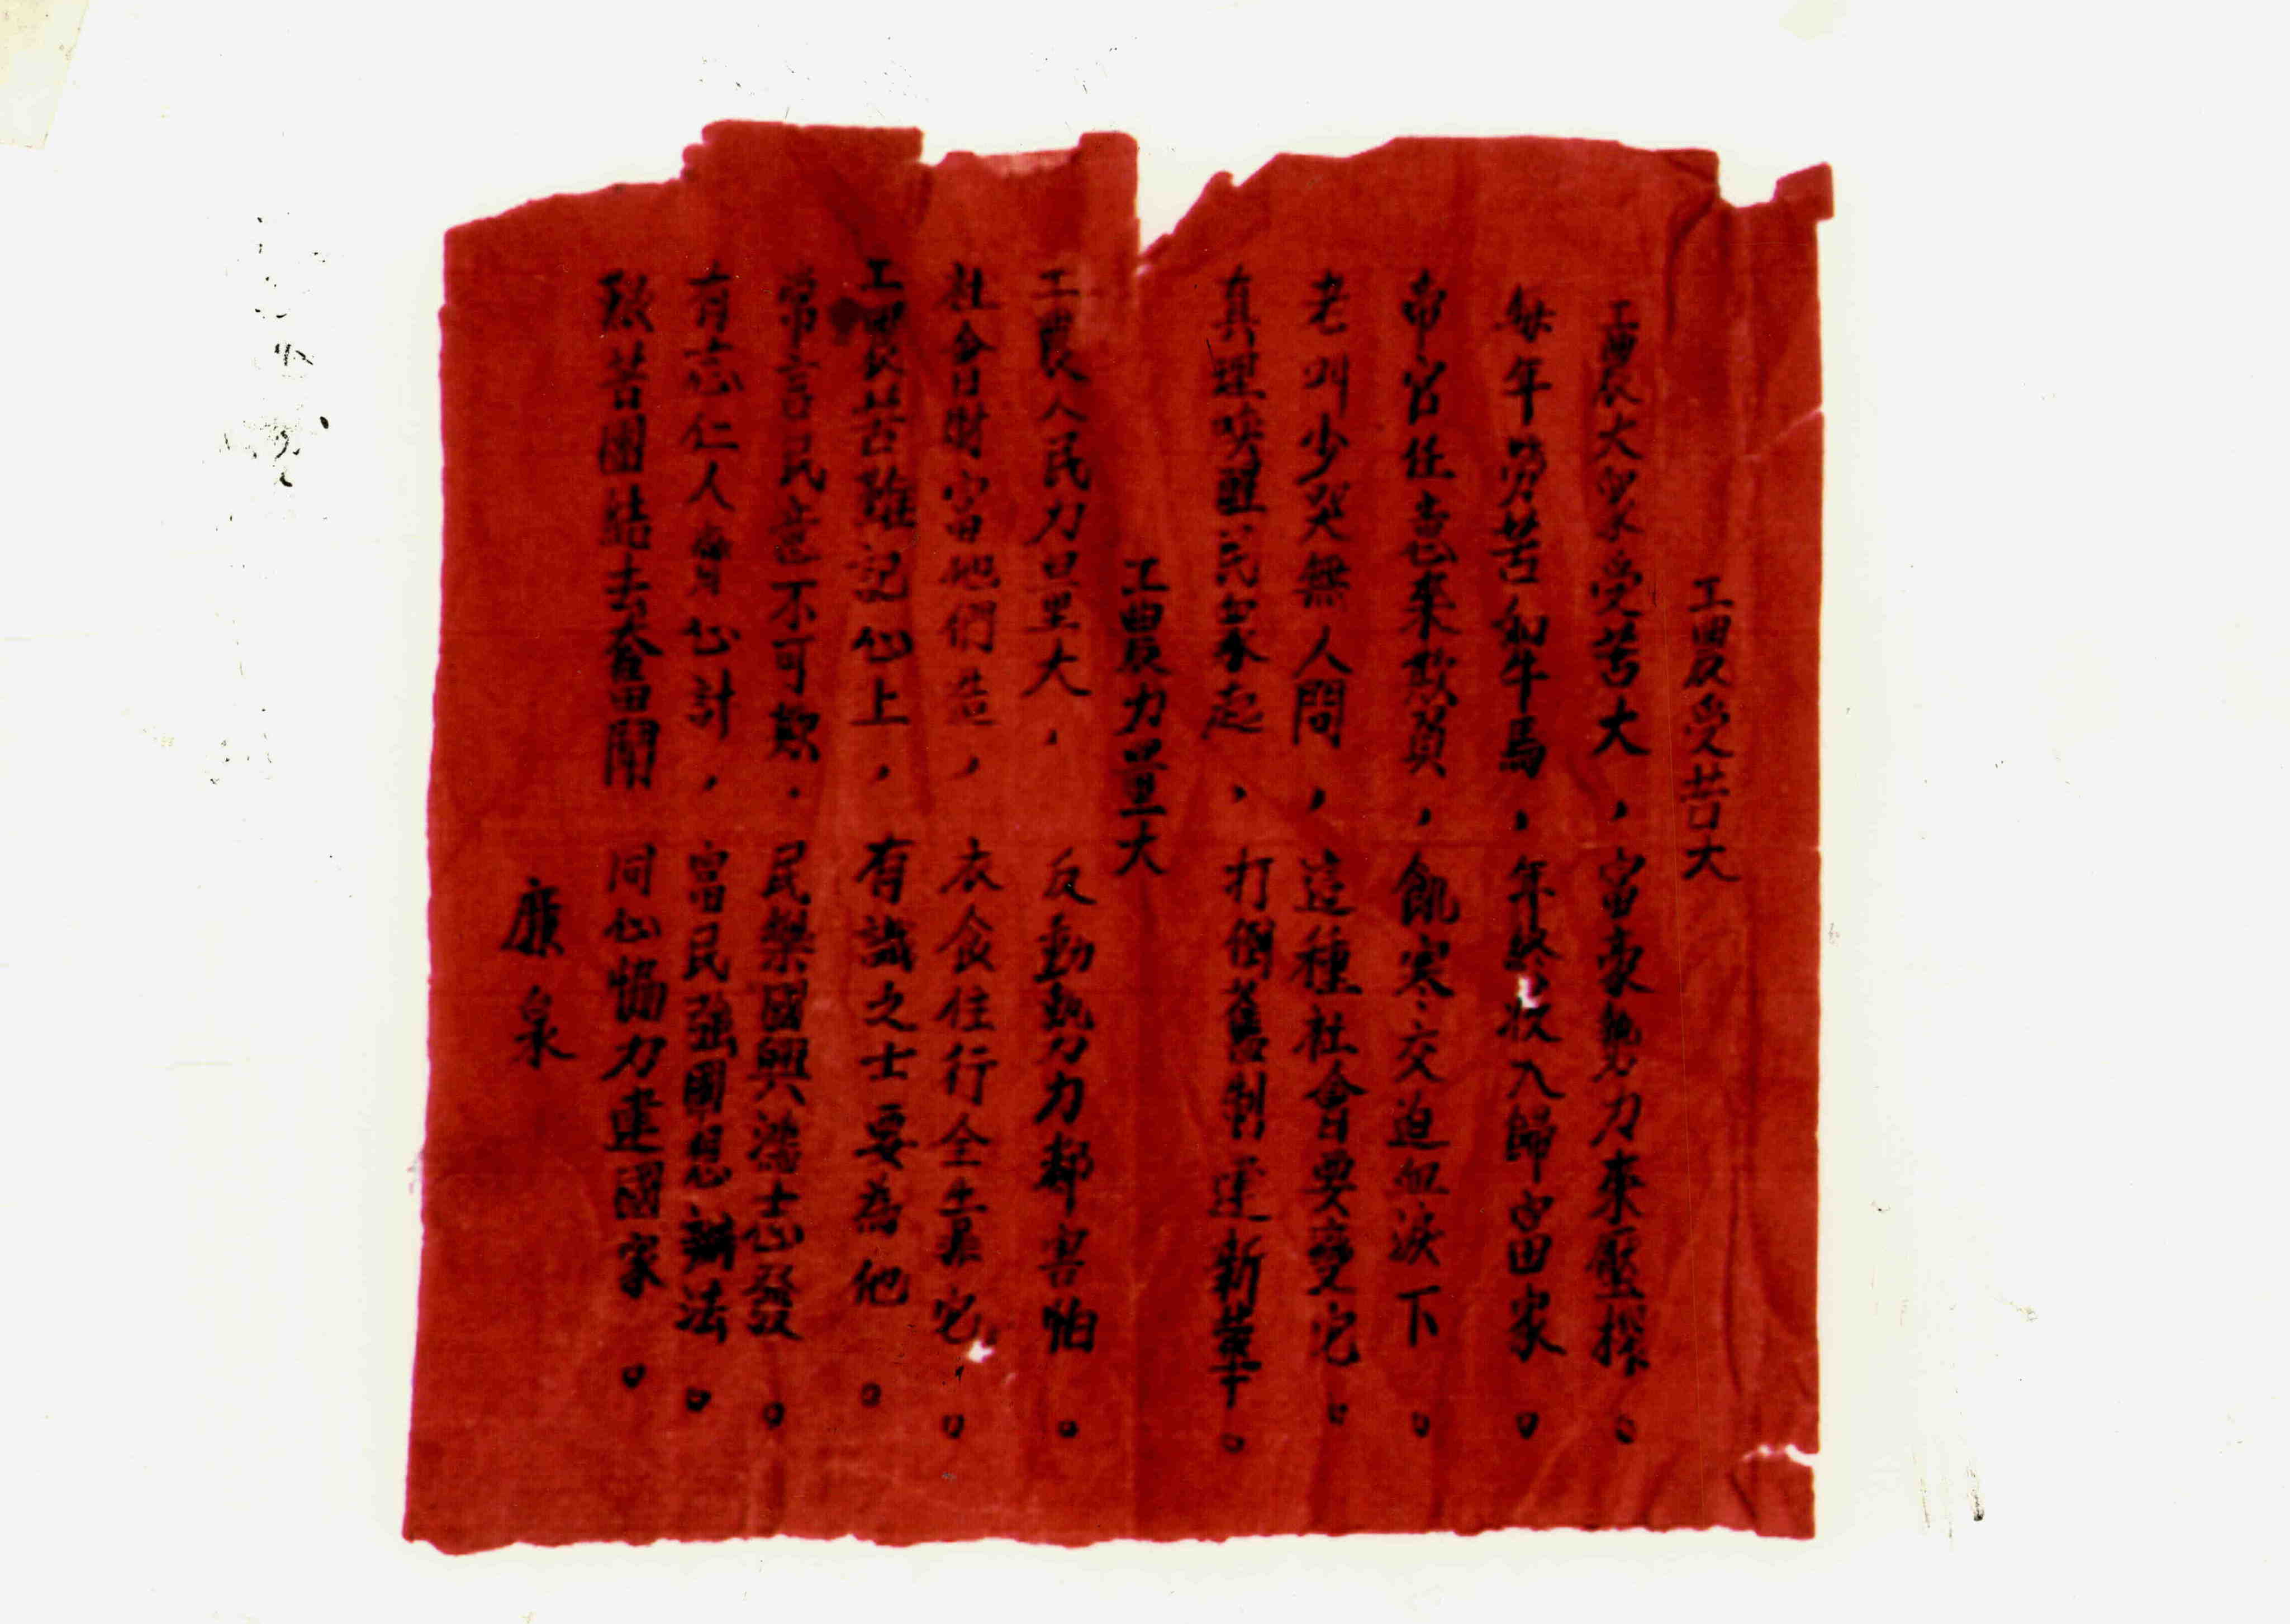 工農受苦大
工農大眾受苦大，富豪勢力來壓搾。
每年勞苦如牛馬，年終收入歸富家。
帝官任意來欺負，飢寒交迫血淚下。
老叫少哭無人問，這種社會要變它。
真理喚醒民眾起，打倒舊制建新華。
工農力量大
工農人民力量大，反動勢力都害怕。
社會財富他們造，衣食住行全靠它。
工農苦難記心上，有識之士要為他。
常言民意不可欺．民樂國興憑士心發。
有志仁人費心計，富民強國想辦法。
艱苦團結去奮鬥 同心協力建國家。
康泉